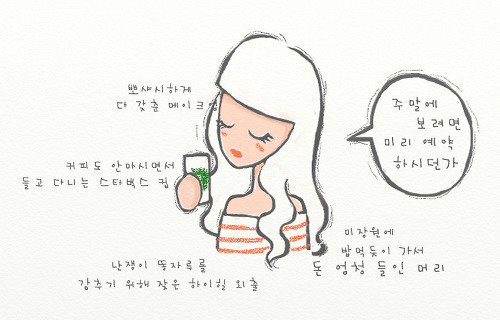 뽀샤시하게
다 갖춘 메이크업
커피도 안마시면서
들고 다니는 스타벅스 컵
난쟁이 똥자루를
감추기 위해 잦은 하이힐 외출
주말에
보려면
미리 예약
하시던가
미장원에
밥먹듯이 가서
돈 엄청 들인 머리